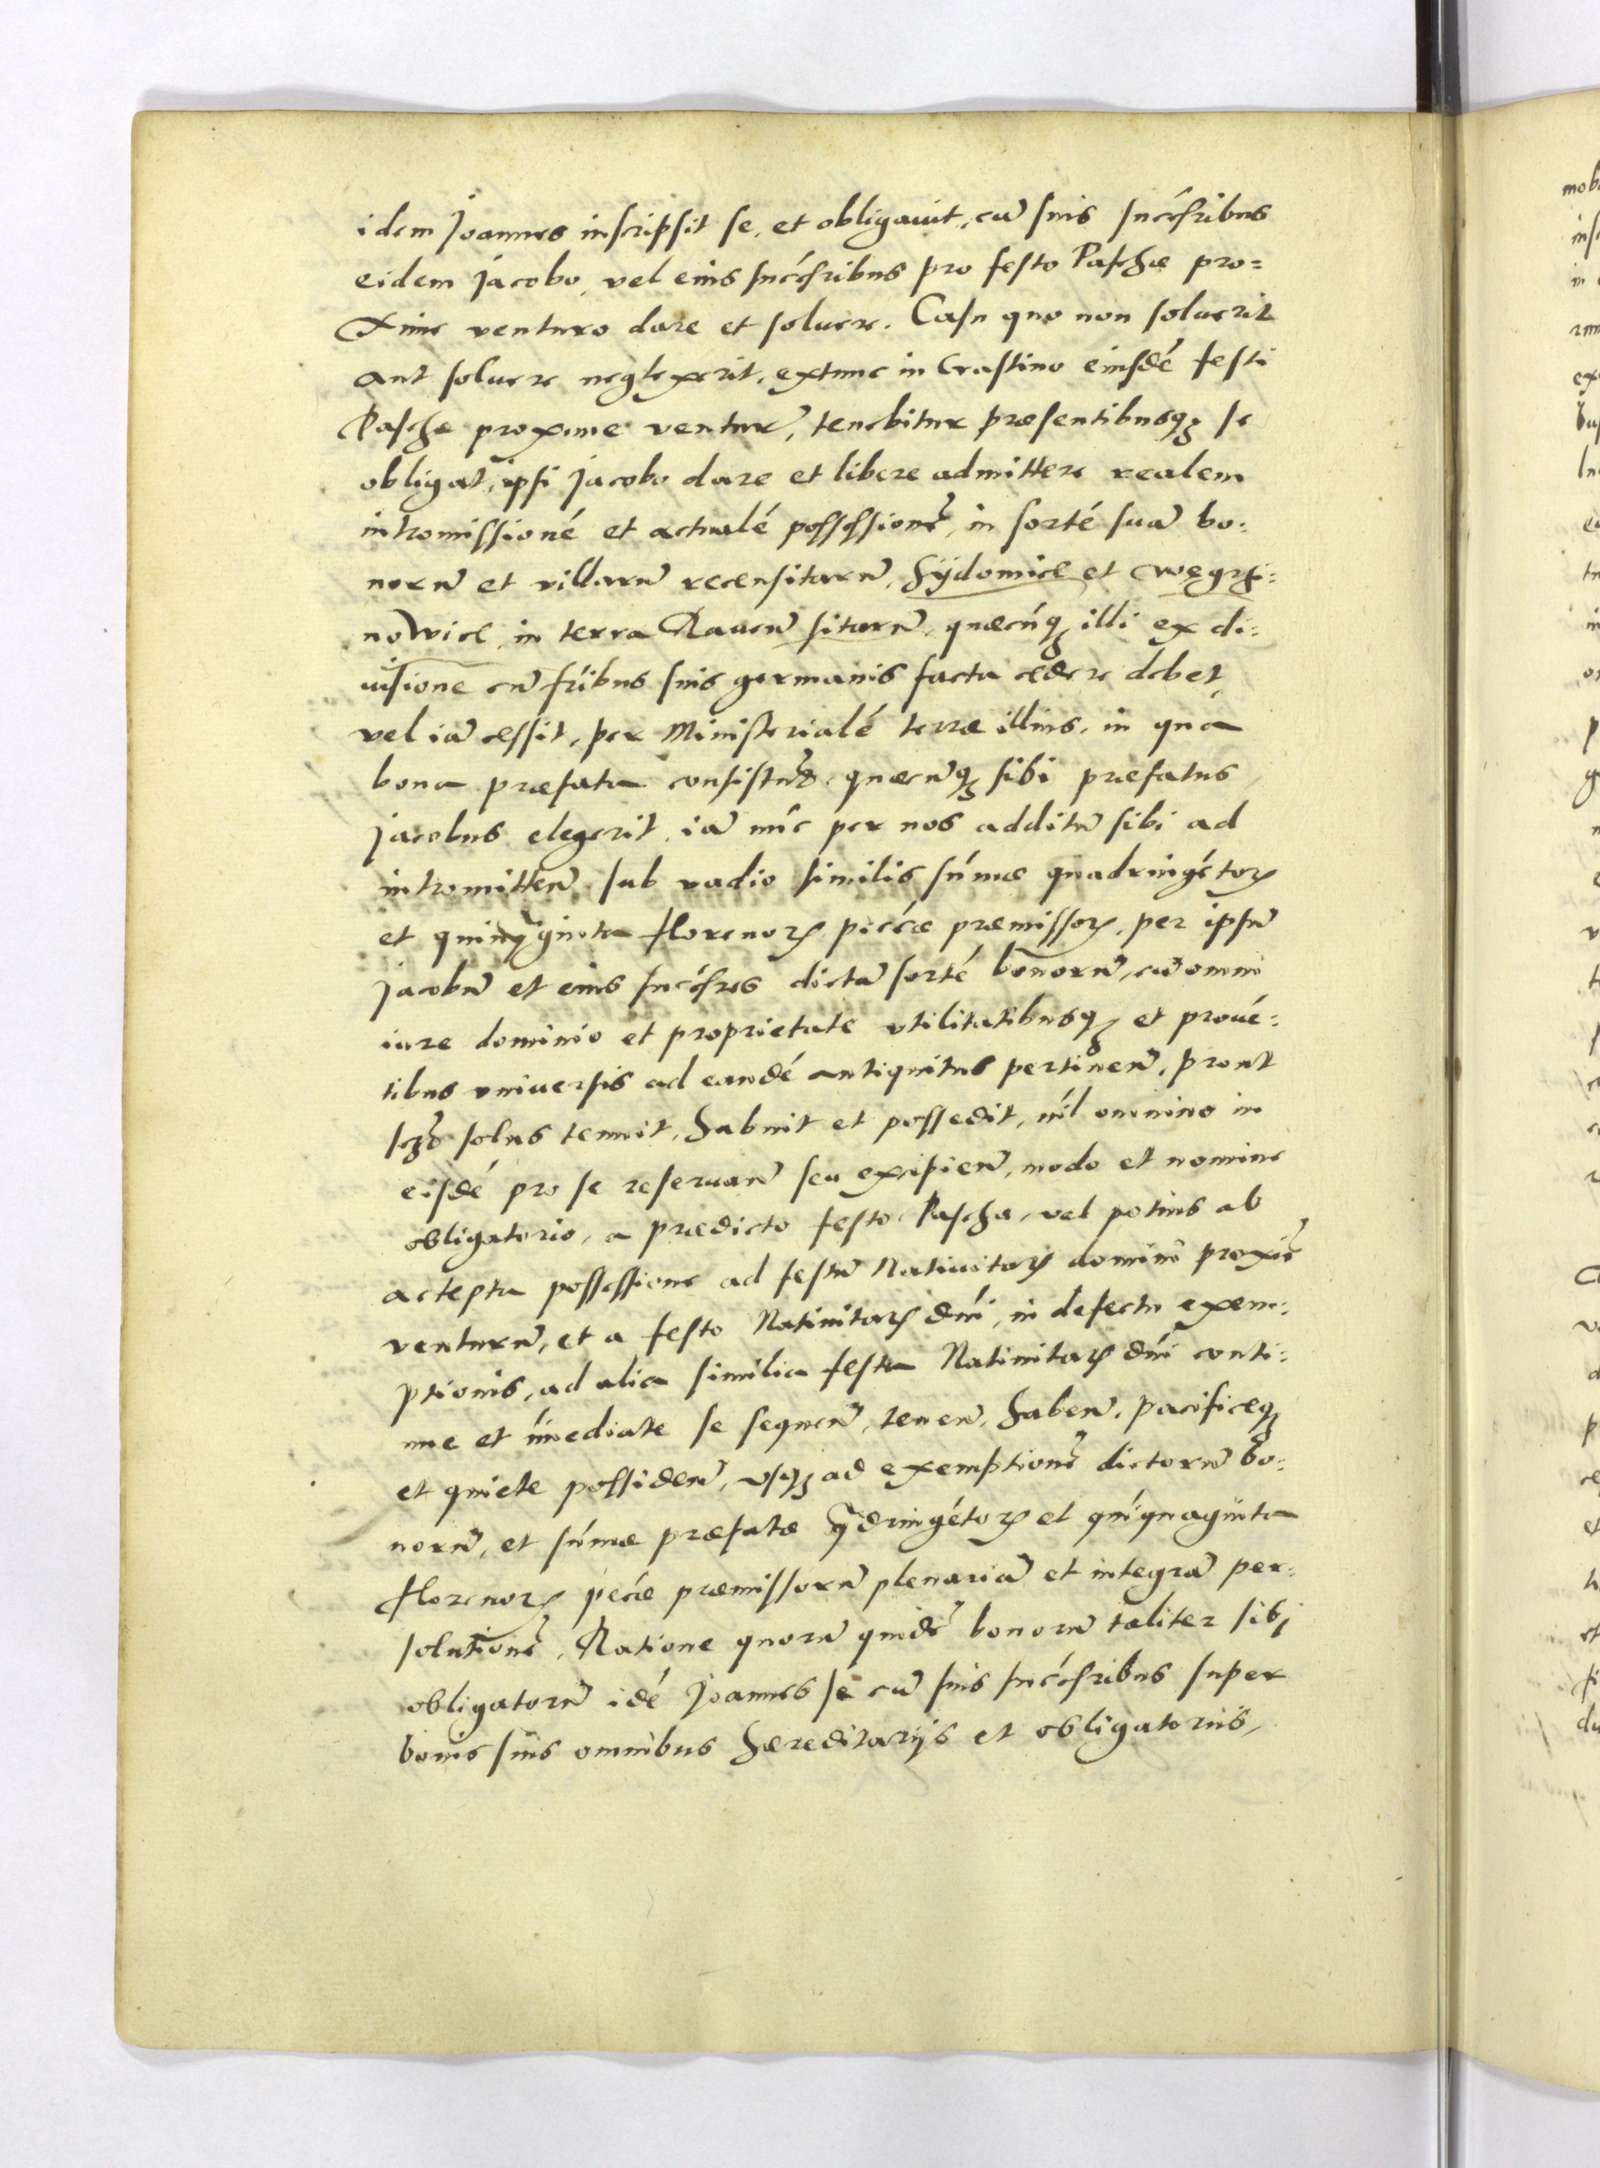 idem Joannes inscripsit se, et obligauit, cū suis succ̄ribus
eidem Jacobo, vel eius succ̄ribus pro festo Paschæ pro=
xime venturo dare et soluere. Casu quo non soluerit
aut soluere neglexerit, extunc in Crastino eiusdē festi
Paschæ proxime ventur̃, tenebitur præsentibusq; se
obligat, ipsi Jacobo dare et libere admittere realem
intromissionē et actualē possessionē, in sortē suā bo:
norū et villarū recensitarū, Hÿdomice et
nowice in terra Rauen̄ sitarū, quæcūq; illi ex di:
uisione cū fr̄ibus suis germanis facta cedere debet,
vel iā cessit, per Ministerialē terræ illius, in qua
bona præfata consistūt, quæcūq; sibi præfatus
Jacobus elegerit, iā nūc per nos additū sibi ad
intromitten̄ sub vadio similis sūmæ quadringētorꝝ
et quinq̄ginta florenorꝝ pecc̄æ præmissorꝝ, per ipsū
Jacobū et eius succ̄res dictā sortē bonorū, cū omni
iure dominio et proprietate vtilitatibusq; et prouē:
tibus vniuersis ad eandē antiquitus pertinen̄, prout
solus tenuit, habuit et possedit, nīl omnino in
eisdē pro se reseruan̄ seu excipien̄, modo et nomine
obligatorio, a prædicto festo Paschæ, vel potius ab
accepta possessione ad festū Natiuitatꝭ domini proxiē
venturū, et a festo Natiuitatꝭ dn̄i, in defectu exem:
ptionis, ad alia similia festa Natiuitatꝭ dn̄i conti:
nue et īmediate se sequen̄, tenen̄, haben̄, pacificeq;
et quiete possiden̄, vsq; ad exemptionē dictorū bo:
norū, et sūmæ præfatæ q̄dringētorꝝ et quīquagīnta
florenorꝝ pec̄æ præmissorū plenariā et integrā per:
solutionē, Ratione quorū quidē bonorū taliter sibi
obligatorū idē Joannes se cū suis succ̄ribus super
bonis suis omnibus hæreditarijs et obligatorijs,